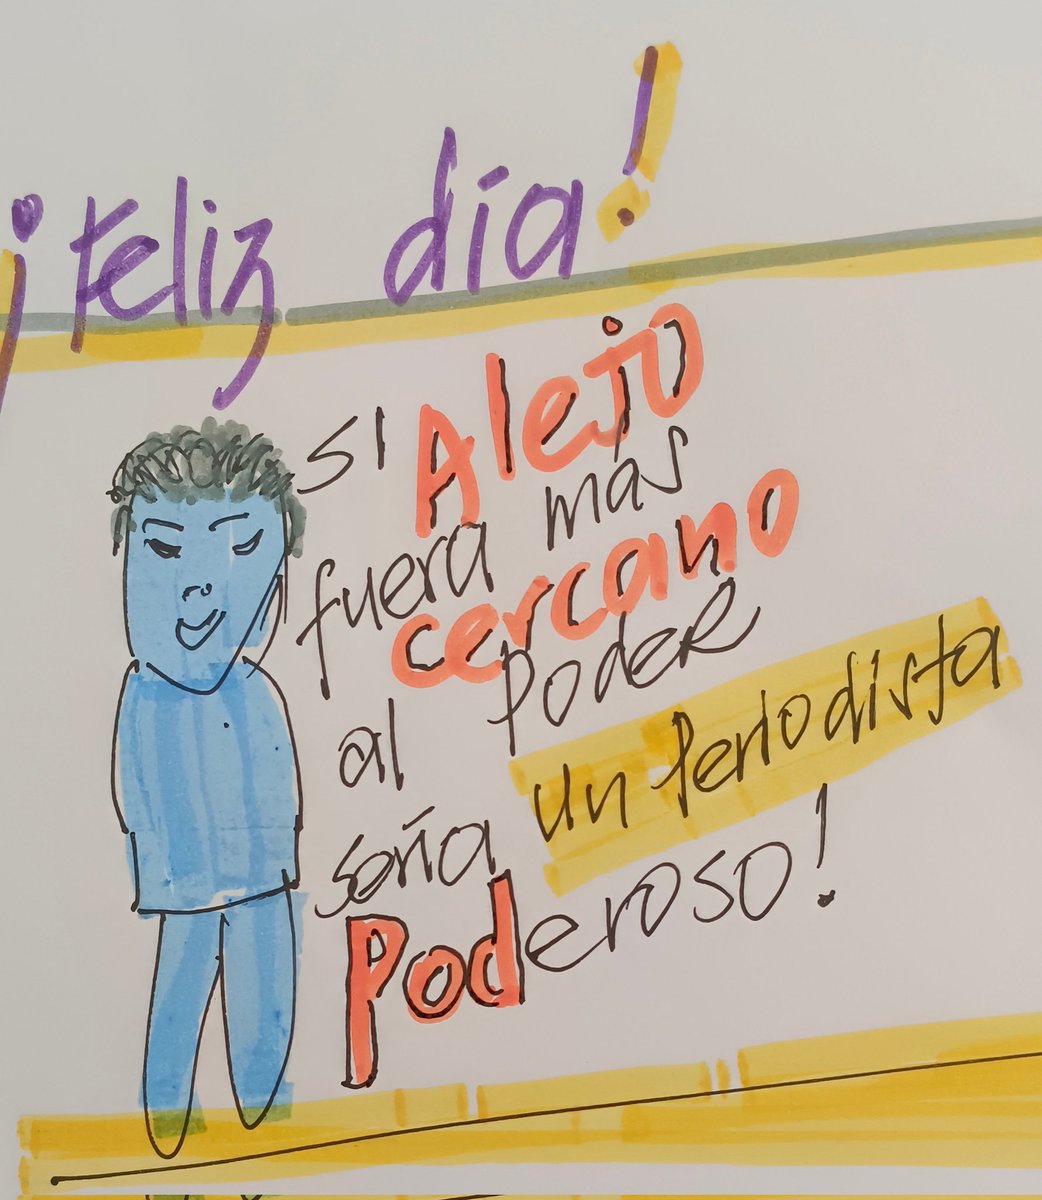 ¡feliz día!
si Alejo
fuera mas
cercano
al Poder
sería un Periodista
Poderoso!